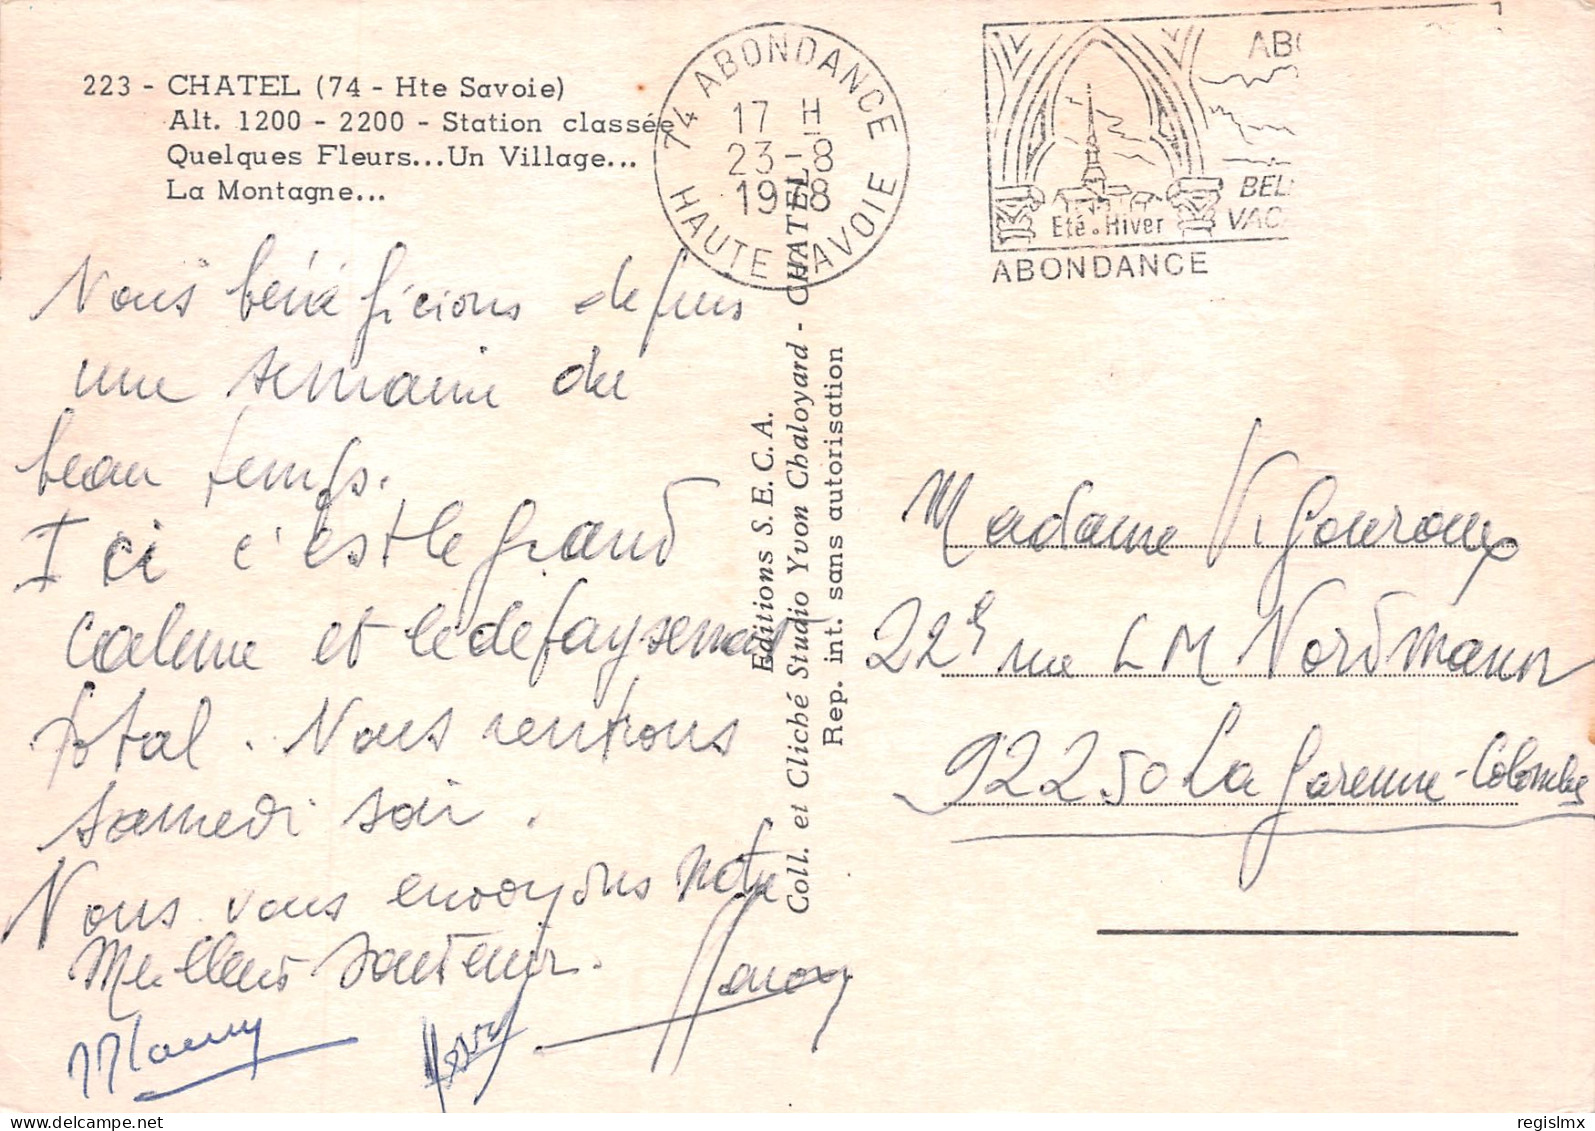 223 - CHATEL (74 - Hte Savoie)
Alt. 1200 - 2200 - Station classée
Quelques Fleurs...Un Village...
La Montagne...
74 ABONDANCE
17 H
23-8
1978
HAUTE SAVOIE
AB
BEL
VAC
Eté. Hiver
ABONDANCE
Nous bénéficions depuis
une semaine du
beau temps.
Ici c'est le grand
calme et le depaysement
total. Nous rentrons
samedi soir.
Nous vous envoyons notre
Meilleur souvenir.
Editions S.E.C.A.
Coll. et Cliché Studio Yvon Chaloyard - CHATEL
Rep. int. sans autorisation
Madame Vigouroux
22 rue L M Nordmann
92250 La Garenne-Colombes
delcampe.net
regislmx